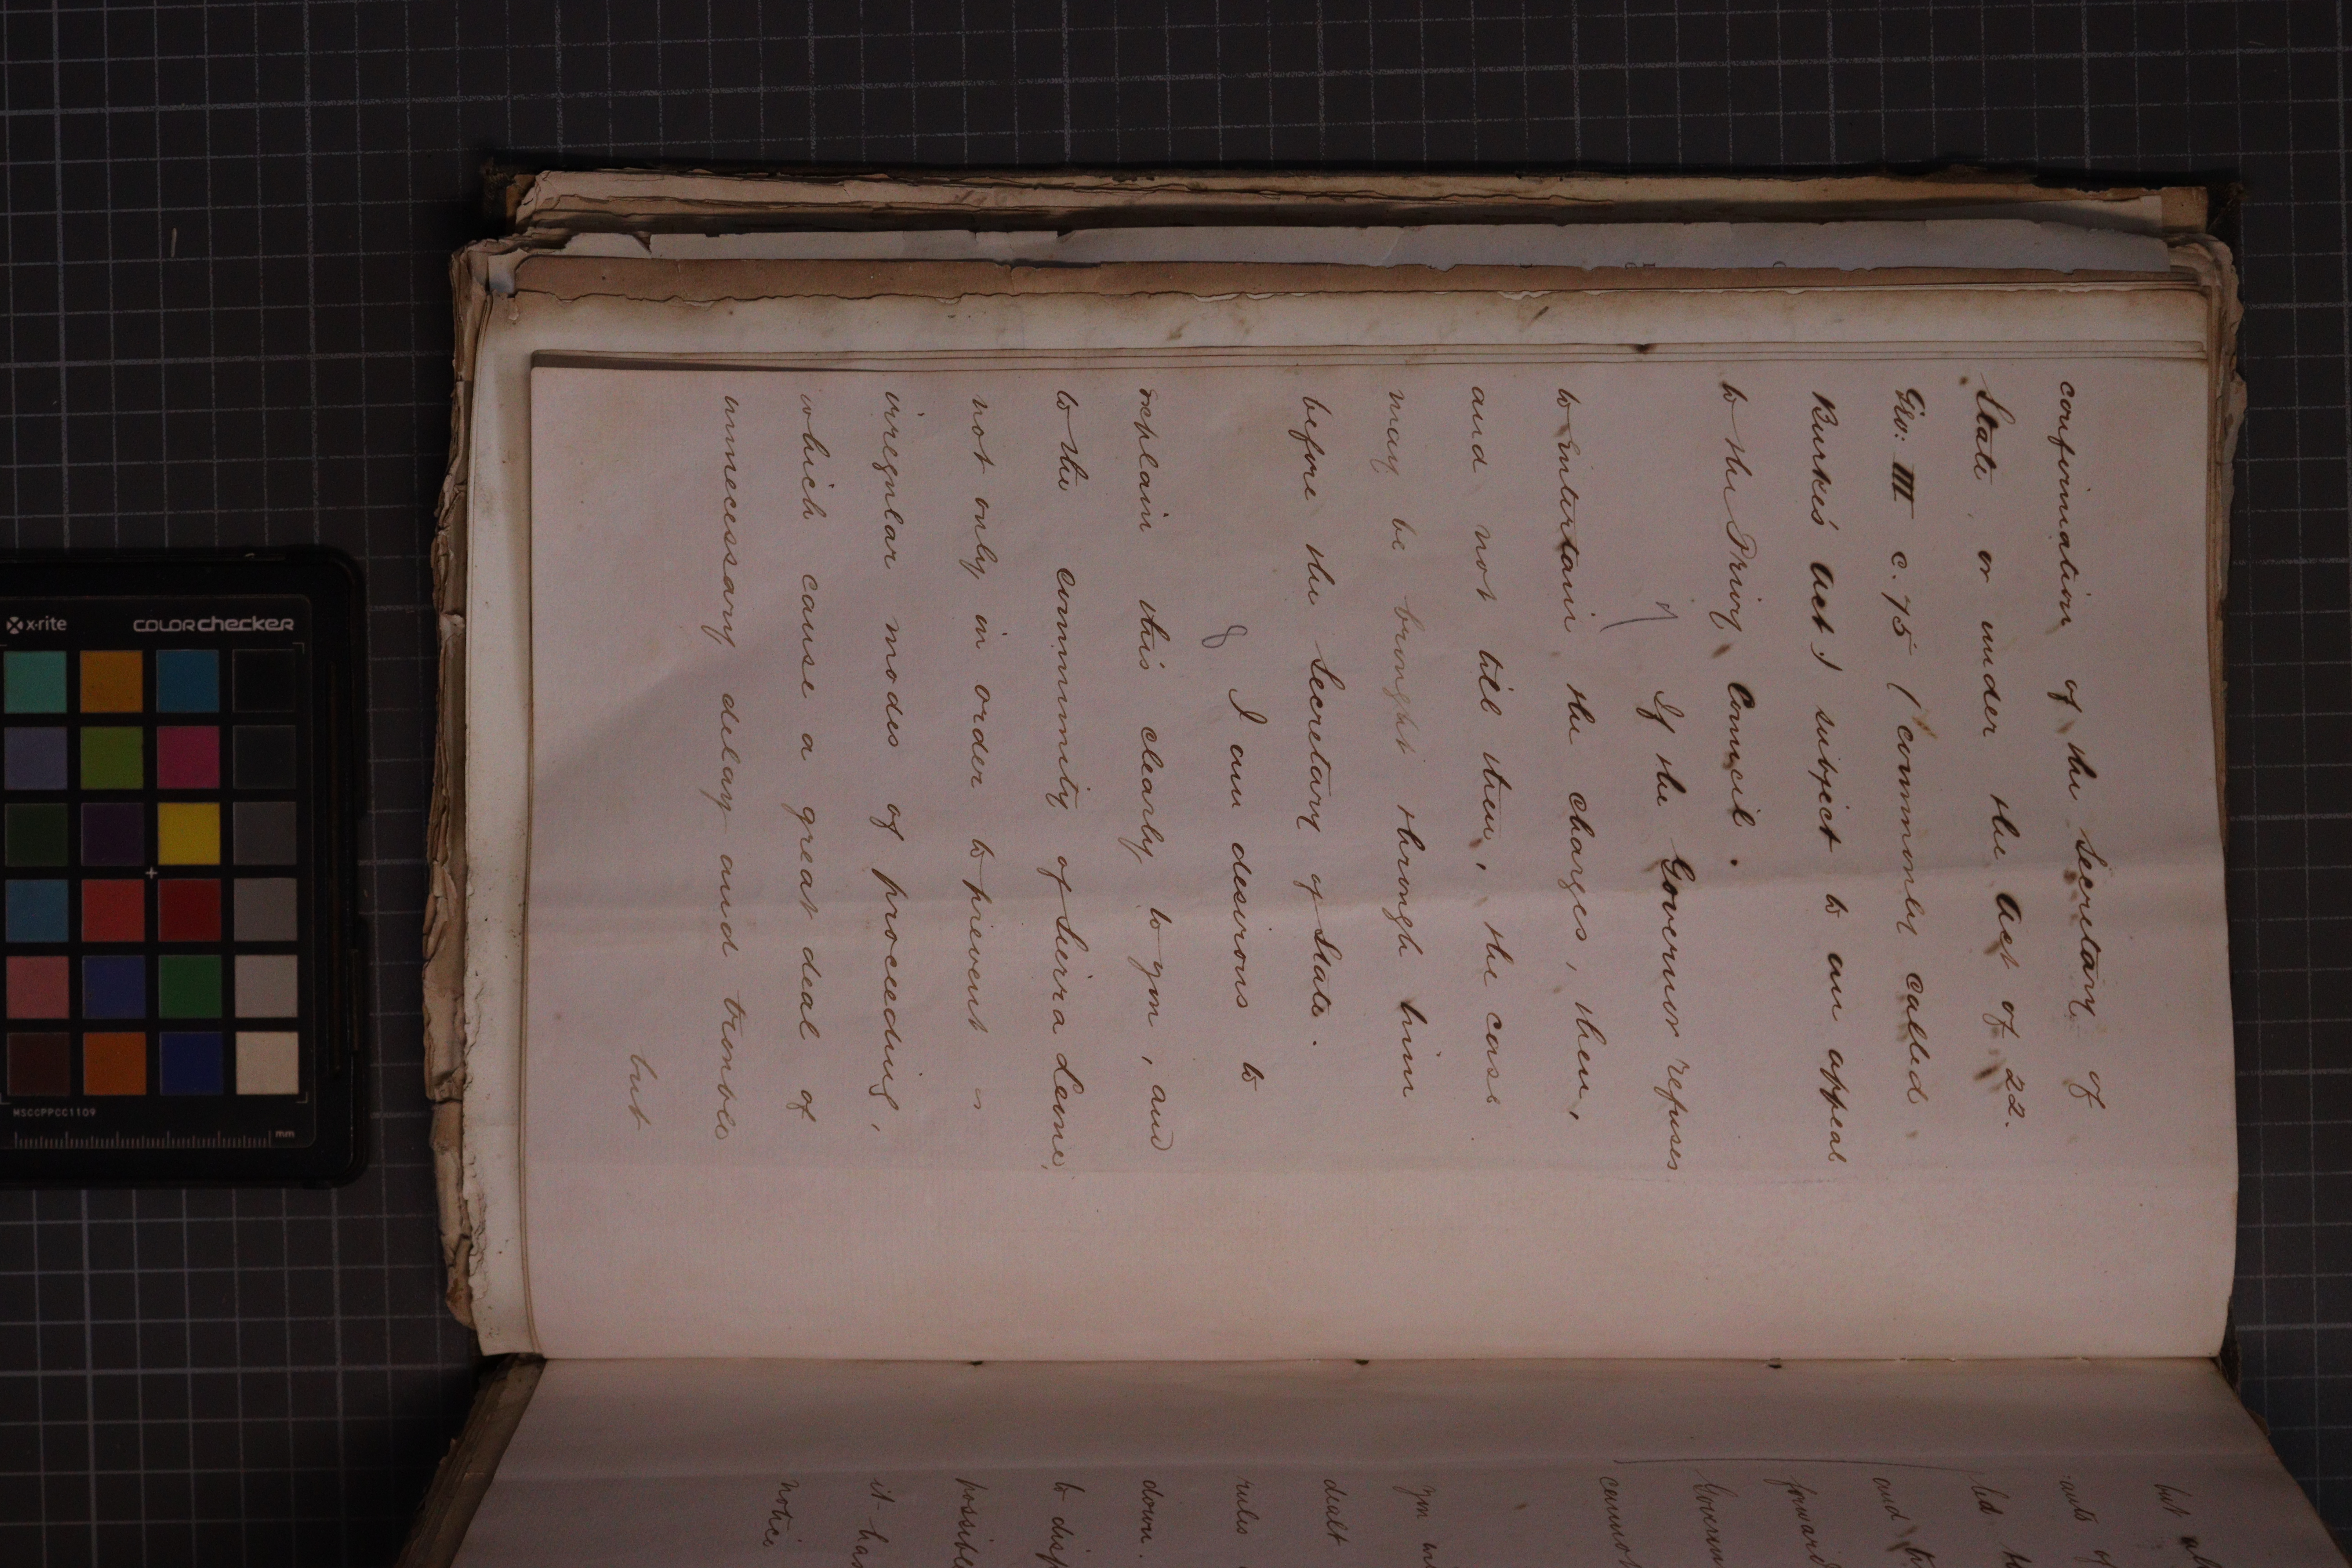 confirmation of the Secretary of
State or under the Act of 22.
Geo: III c. 75 (commonly called
Burke's Act) subject to an appeal
to the Privy Council.
7/ If the Governor refuses
to entertain the charges, then,
and not till then, the case
may be brought through him
before the Secretary of State.
8 I am desirous to
explain this clearly to you, and
to the community of Sierra Leone,
not only in order to prevent
irregular modes of proceeding,
which cause a great deal of
unnecessary delay and trouble
but
but
ants
led
and
forward
Governm
cannot
you
dealt
rules
down.
to disp
possible
it has
notice
x-rite
colorchecker
MSCCPPCC1109
mm